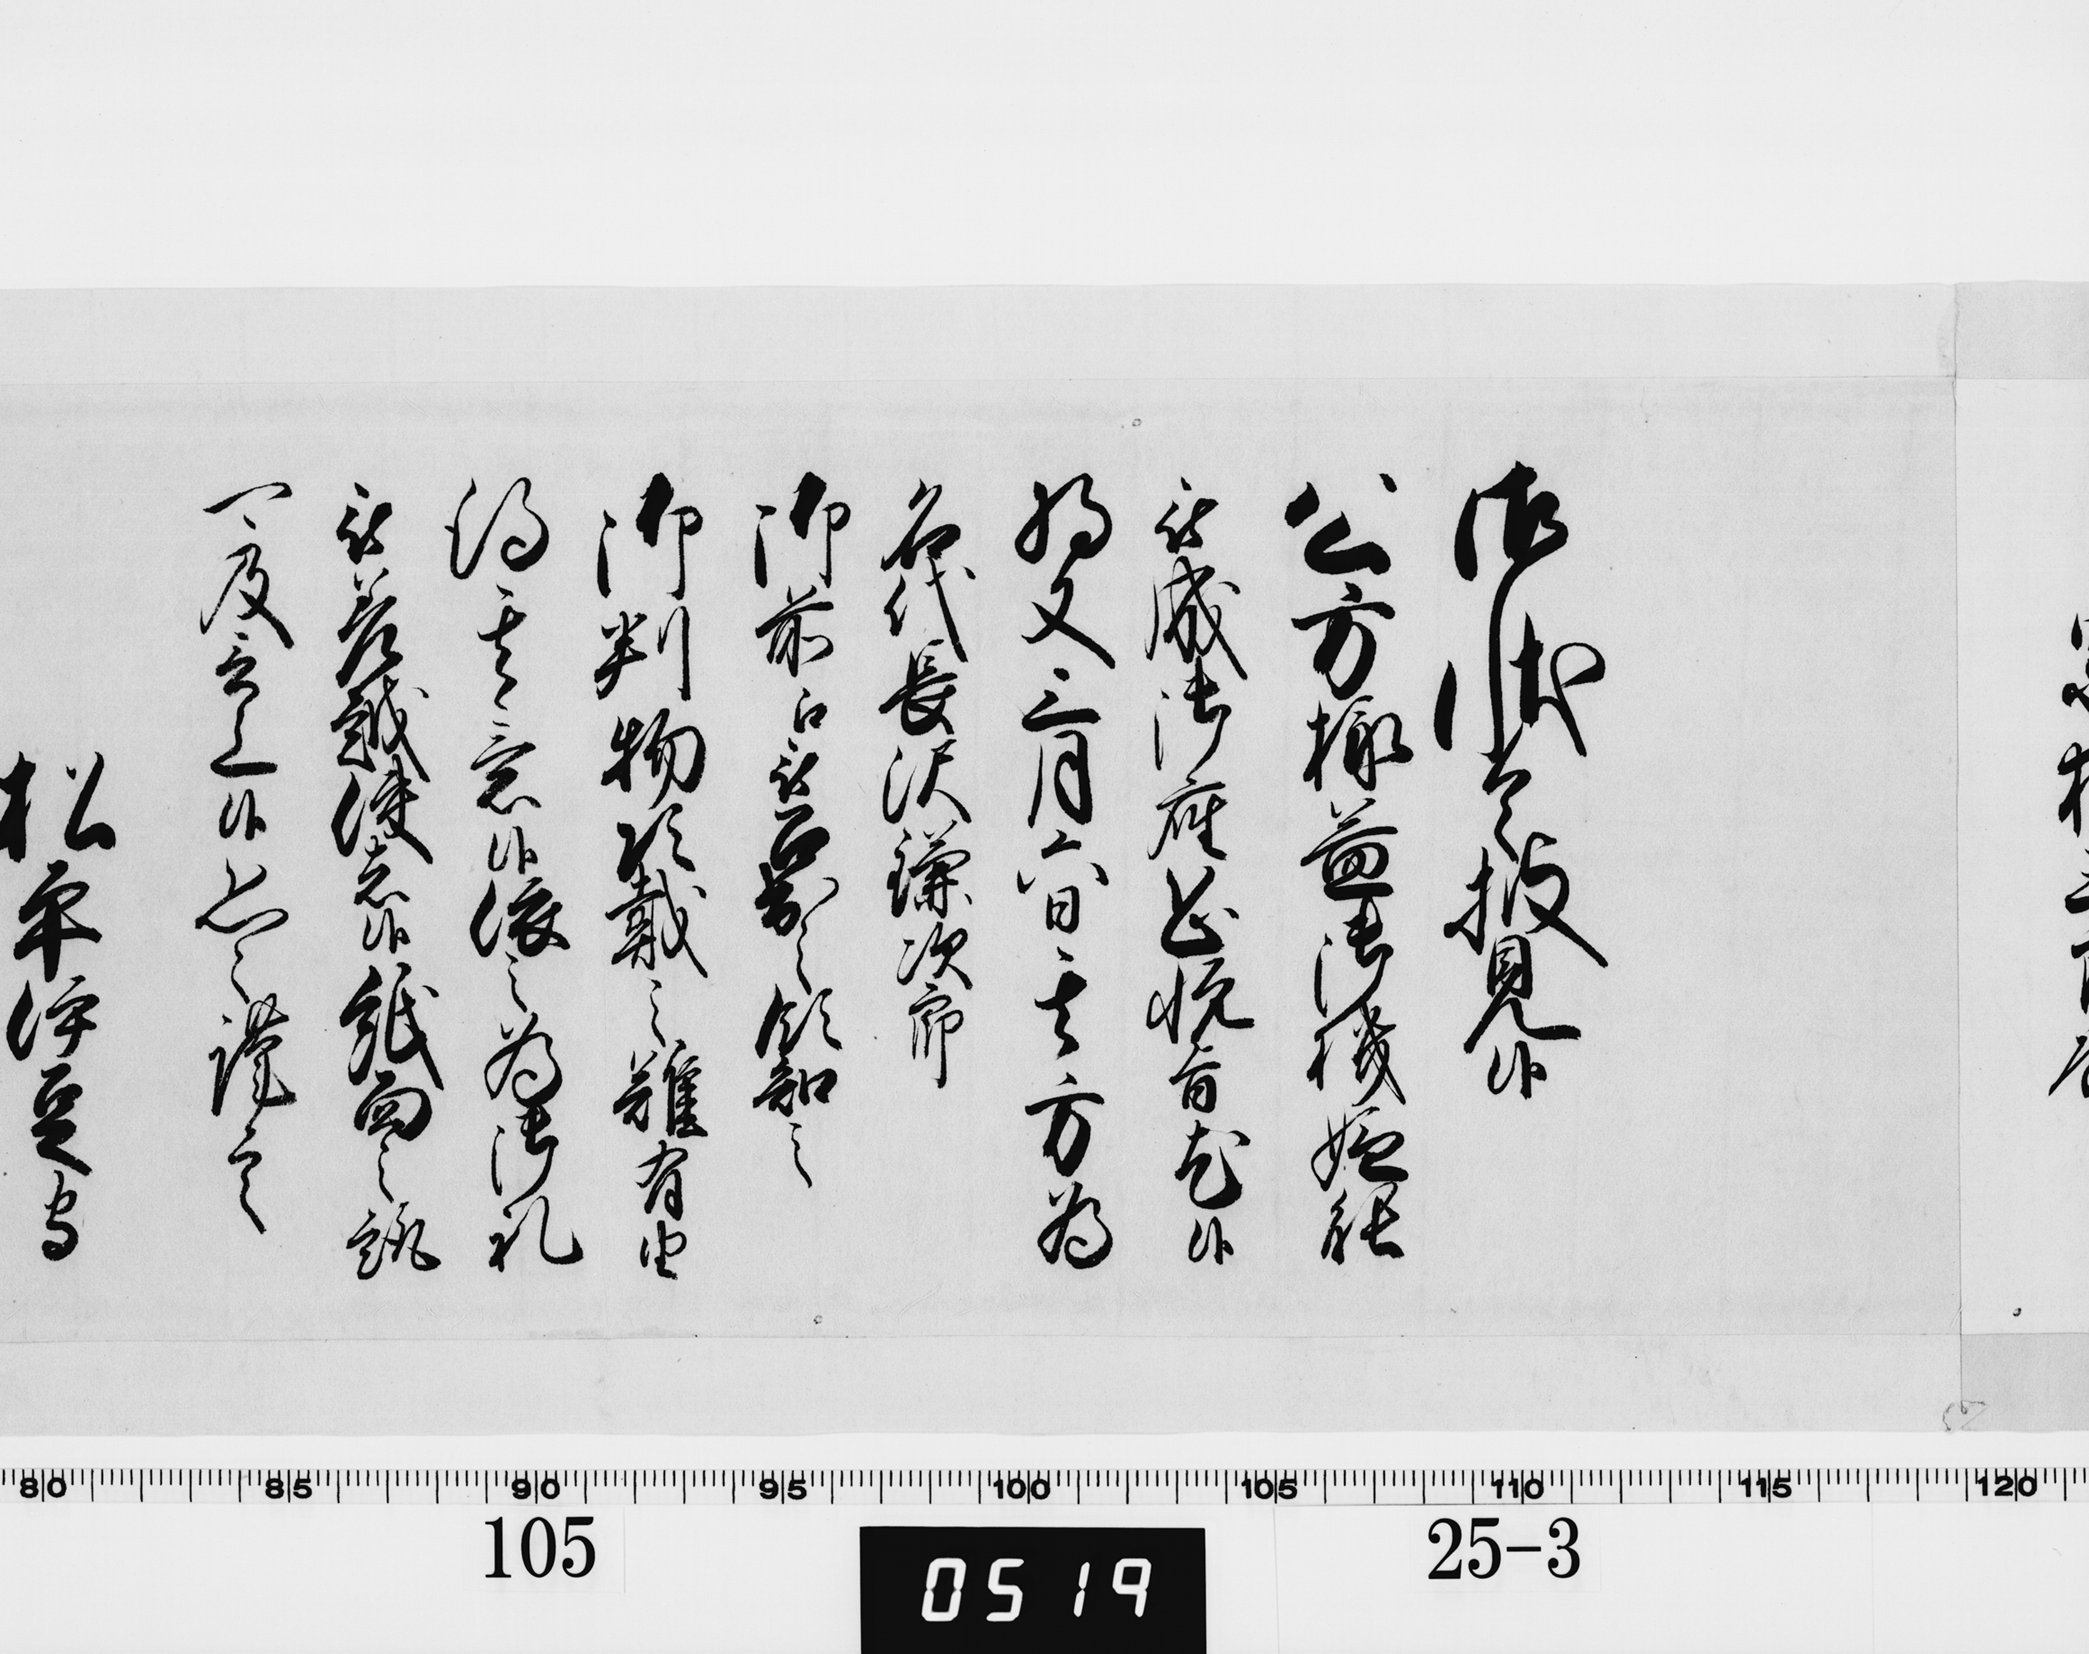 御状令披見候
公方様益御機嫌能
被成御座恐悦旨尤候
将又三月六日其方為
名代長沢鎌次郎
御前江被召出領知之
御判物頂戴之難有由
得其意候依之為御礼
被差越使者候紙面之趣
可及言上候恐々謹言
松平伊豆守
80 85 90 95 100 105 110 115 120
105
0519
25-3